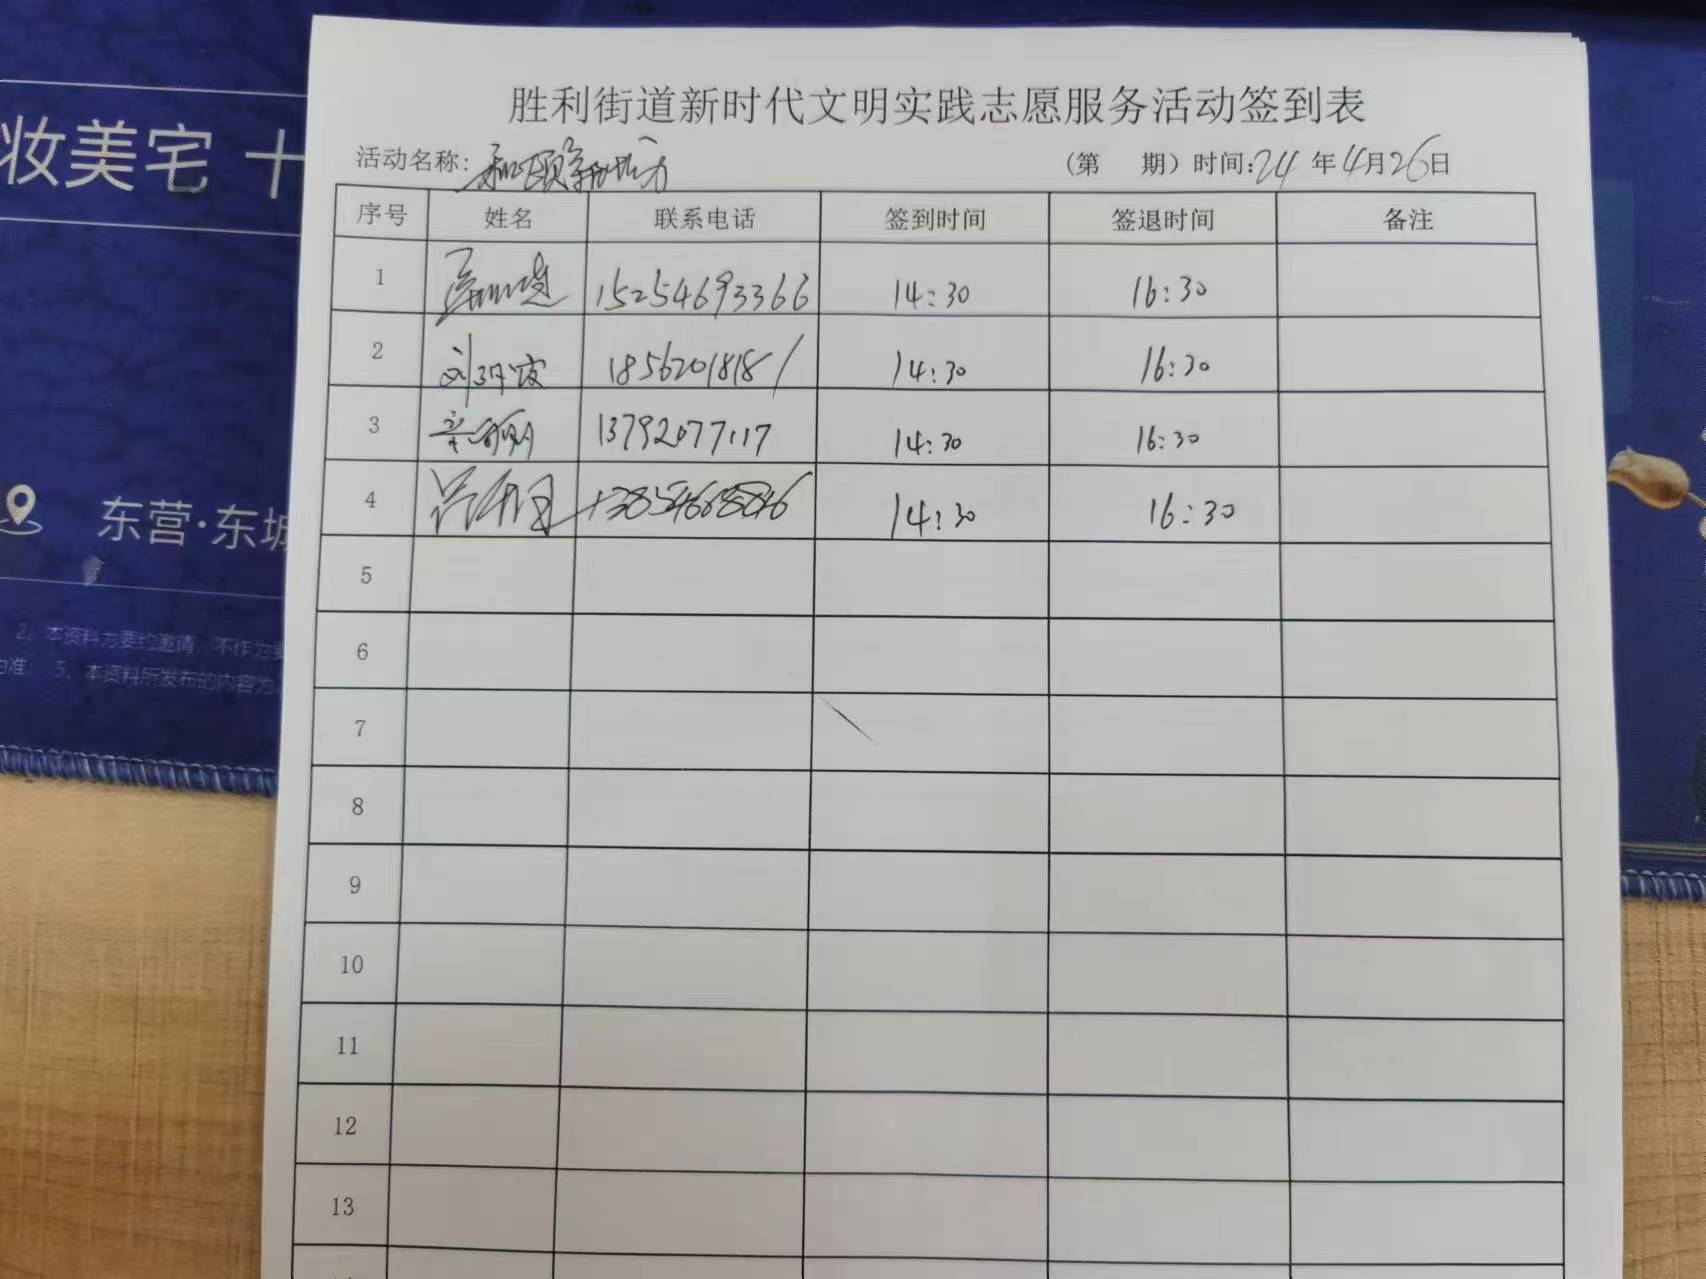 胜利街道新时代文明实践志愿服务活动签到表
活动名称: (第 期) 时间:24年4月26日
序号 姓名 联系电话 签到时间 签退时间 备注
1 15254693366 14:30 16:30
2 18562018181 14:30 16:30
3 13792077117 14:30 16:30
4 14:30 16:30
5
6
7
8
9
10
11
12
13
妆美宅 十
东营·东城
2、本资料为要约邀请,不作为要
为准; 5、本资料所发布的内容为